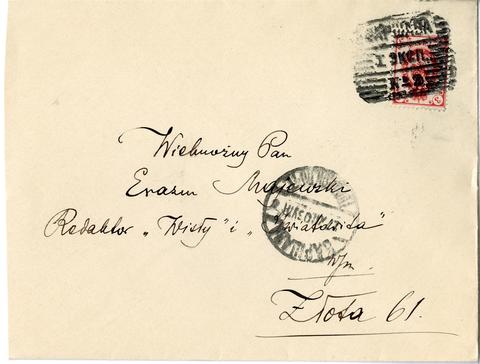 ВАРШАВА
I ЭКСП.
Wielmożny Pan
Erazm Majewski
Redaktor „Wisły" i „Światowita"
W/m.
Złota 61.